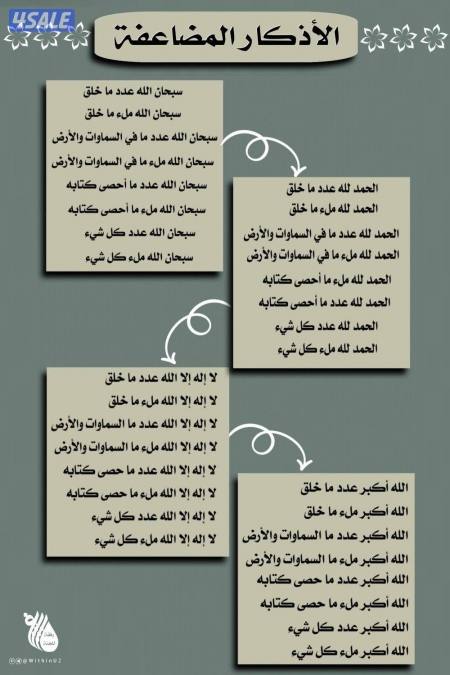 4SALE
الأذكار المضاعفة
سبحان الله عدد ما خلق
سبحان الله ملء ما خلق
سبحان الله عدد ما في السماوات والأرض
سبحان الله ملء ما في السماوات والأرض
سبحان الله عدد ما أحصى كتابه
سبحان الله ملء ما أحصى كتابه
سبحان الله عدد كل شيء
سبحان الله ملء كل شيء
الحمد لله عدد ما خلق
الحمد لله ملء ما خلق
الحمد لله عدد ما في السماوات والأرض
الحمد لله ملء ما في السماوات والأرض
الحمد لله ملء ما أحصى كتابه
الحمد لله عدد ما أحصى كتابه
الحمد لله عدد كل شيء
الحمد لله ملء كل شيء
لا إله إلا الله عدد ما خلق
لا إله إلا الله ملء ما خلق
لا إله إلا الله عدد ما السماوات والأرض
لا إله إلا الله ملء ما السماوات والأرض
لا إله إلا الله عدد ما حصى كتابه
لا إله إلا الله ملء ما حصى كتابه
لا إله إلا الله عدد كل شيء
لا إله إلا الله ملء كل شيء
الله أكبر عدد ما خلق
الله أكبر ملء ما خلق
الله أكبر عدد ما السماوات والأرض
الله أكبر ملء ما السماوات والأرض
الله أكبر عدد ما حصى كتابه
الله أكبر ملء ما حصى كتابه
الله أكبر عدد كل شيء
الله أكبر ملء كل شيء
@WithinU2